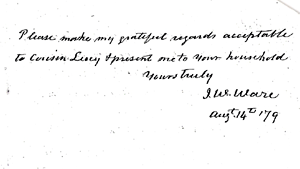 Please make my grateful regards acceptable
to Cousin Lucy & present me to your household
Yours truly
J. W. Ware
Augt. 14th /79